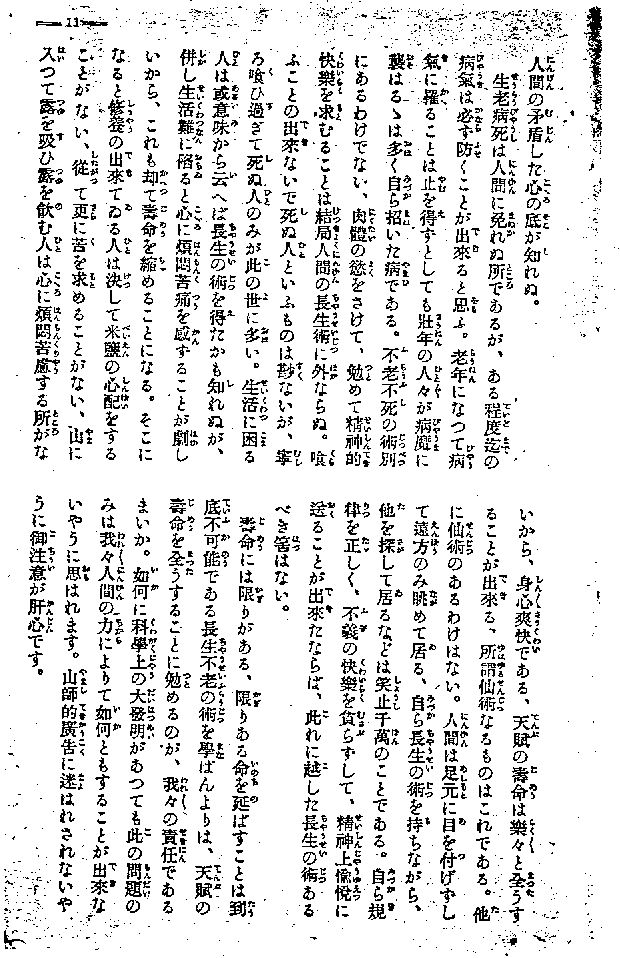 11
人間の矛盾した心の底が知れぬ。
生老病死は人間に免れぬ所であるが、ある程度迄の
病氣は必ず防ぐことが出來ると思ふ。老年になつて病
氣に罹ることは止を得ずとしても壯年の人々が病魔に
襲はるゝは多く自ら招いた病である。不老不死の術別
にあるわけでない、肉體の慾をさけて、勉めて精神的
快樂を求むることは結局人間の長生術に外ならぬ。喰
ふことの出來ないで死ぬ人といふものは尠ないが、寧
ろ喰ひ過ぎて死ぬ人のみが此の世に多い。生活に困る
人は或意味から云へば長生の術を得たかも知れぬが、
併し生活難に陷ると心に煩悶苦痛を感ずることが劇し
いから、これも却て壽命を縮めることになる。そこに
なると修養の出來てゐる人は決して米鹽の心配をする
ことがない、從て更に苦を求めることがない、山に
入つて露を吸ひ露を飮む人は心に煩悶苦慮する所がな
いから、身心爽快である、天賦の壽命は樂々と全うす
ることが出來る、所謂仙術なるものはこれである。他
に仙術のあるわけはない。人間は足元に目を付けずし
て遠方のみ眺めて居る、自ら長生の術を持ちながら、
他を探して居るなどは笑止千萬のことである。自ら規
律を正しく、不義の快樂を貪らずして、精神上愉悅に
送ることが出來たならば、此れに越した長生の術ある
べき筈はない。
壽命には限りがある、限りある命を延ばすことは到
底不可能である長生不老の術を學ばんよりは、天賦の
壽命を全うすることに勉めるのが、我々の責任である
まいか。如何に科學上の大發明があつても此の問題の
みは我々人間の力によりて如何ともすることが出來な
いやうに思はれます。山師的廣告に迷はれされないや
うに御注意が肝心です。